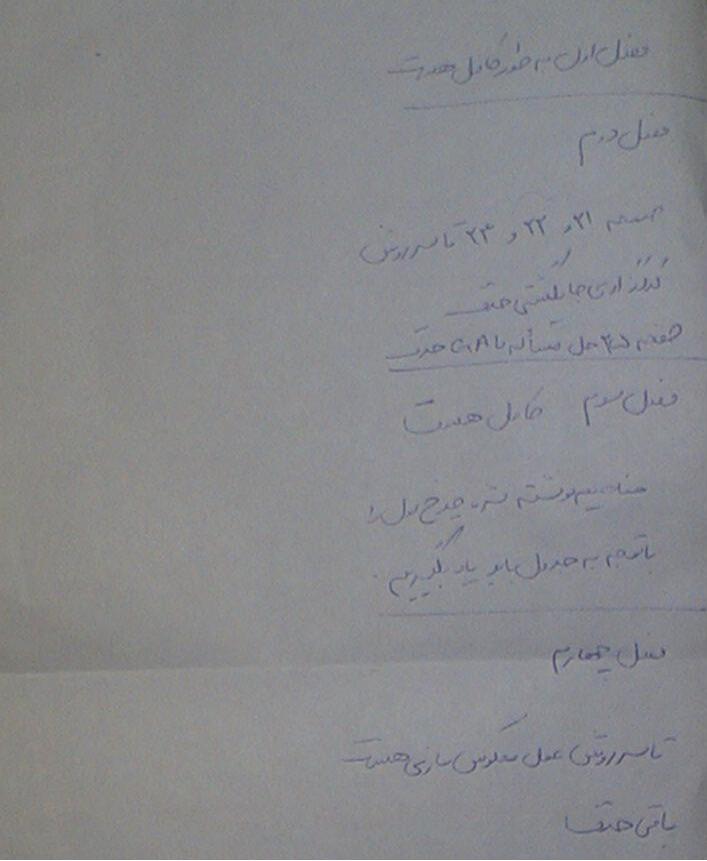 فصل اول به طور کامل هست
فصل دوم
صفحه ۲۱ و ۲۲ و ۲۳ تا سر روش
کدگذاری جایگشتی حذف
صفحه ۳۵ حل مسأله با GA حذف
فصل سوم کامل هست
نوشته شده چرخ رولت را
با توجه به جدول باید یاد بگیریم.
فصل چهارم
تا سر روش عمل معکوس سازی هست
باقی حذف